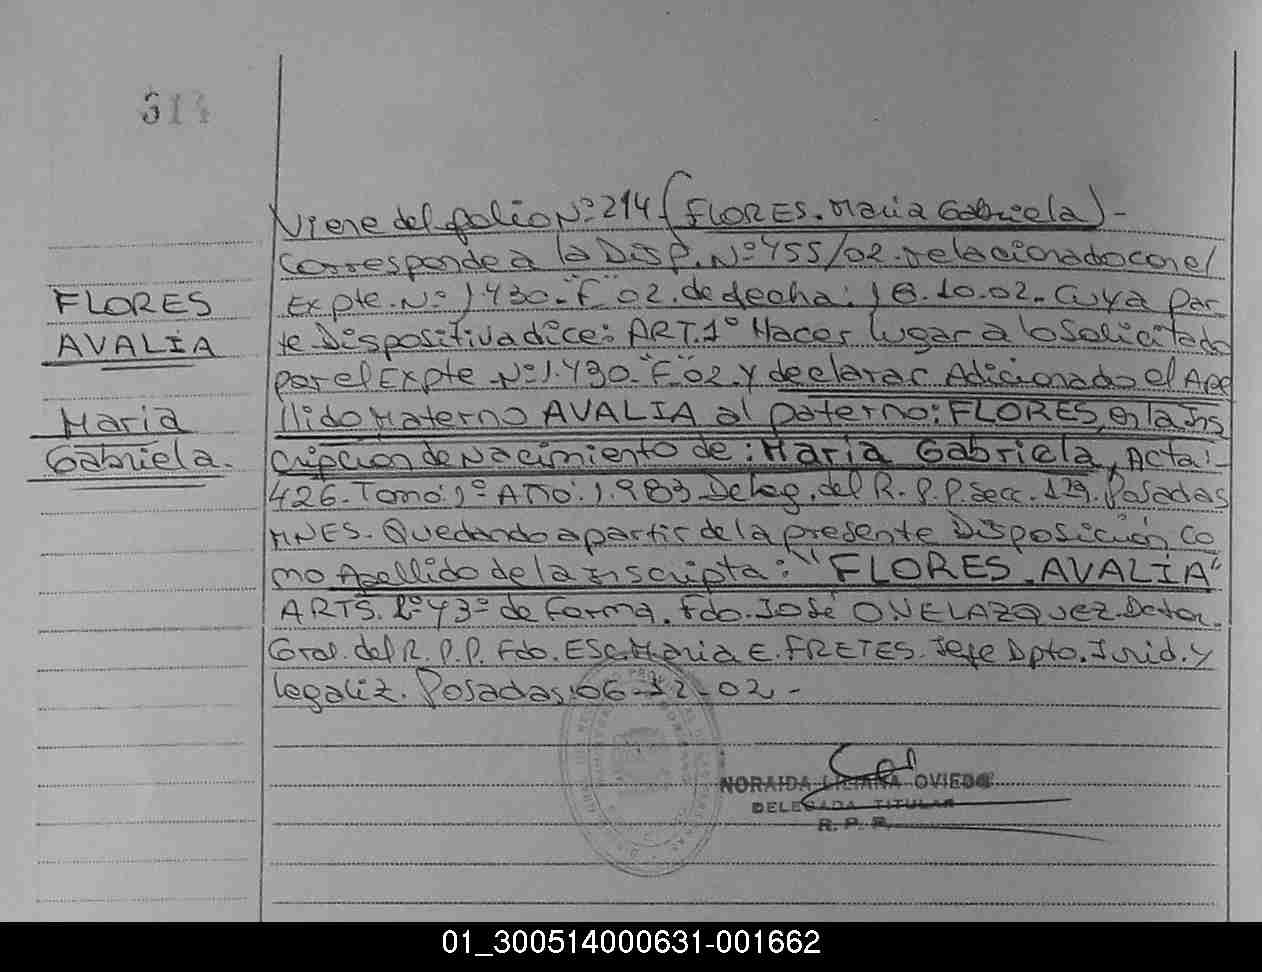 314
FLORES
AVALIA
Maria
Gabriela.
Viene del folio Nº 214 (FLORES. Maria Gabriela) -
Corresponde a la Disp. Nº 455/02. relacionado con el
Expte. Nº 1.430- "F" 02. de fecha: 18.10.02. Cuya Par-
te Dispositiva dice: ART. 1º Hacer lugar a lo solicitado
por el Expte. Nº 1.430- "F" 02. Y declarar Adicionado el Ape
llido Materno AVALIA al paterno: FLORES, en la Ins
cripcion de Nacimiento de: Maria Gabriela, Acta:-
426- Tomo: 1º Año: 1.983 Deleg. del R. P. P. Secc. 1ra. Posadas
MNES. Quedando a partir de la presente Disposición co
mo Apellido de la inscripta: "FLORES, AVALIA"
ARTS. 2º y 3º de forma. Fdo. José O. VELAZQUEZ. Dctor.
Gral. del R. P. P. Fdo. ESC. Maria E. FRETES. Jefe Dpto. Jurid. y
legaliz. Posadas, 06-12-02.-
NORAIDA LILIANA OVIEDO
DELEGADA TITULAR
R. P. P.
01_300514000631-001662